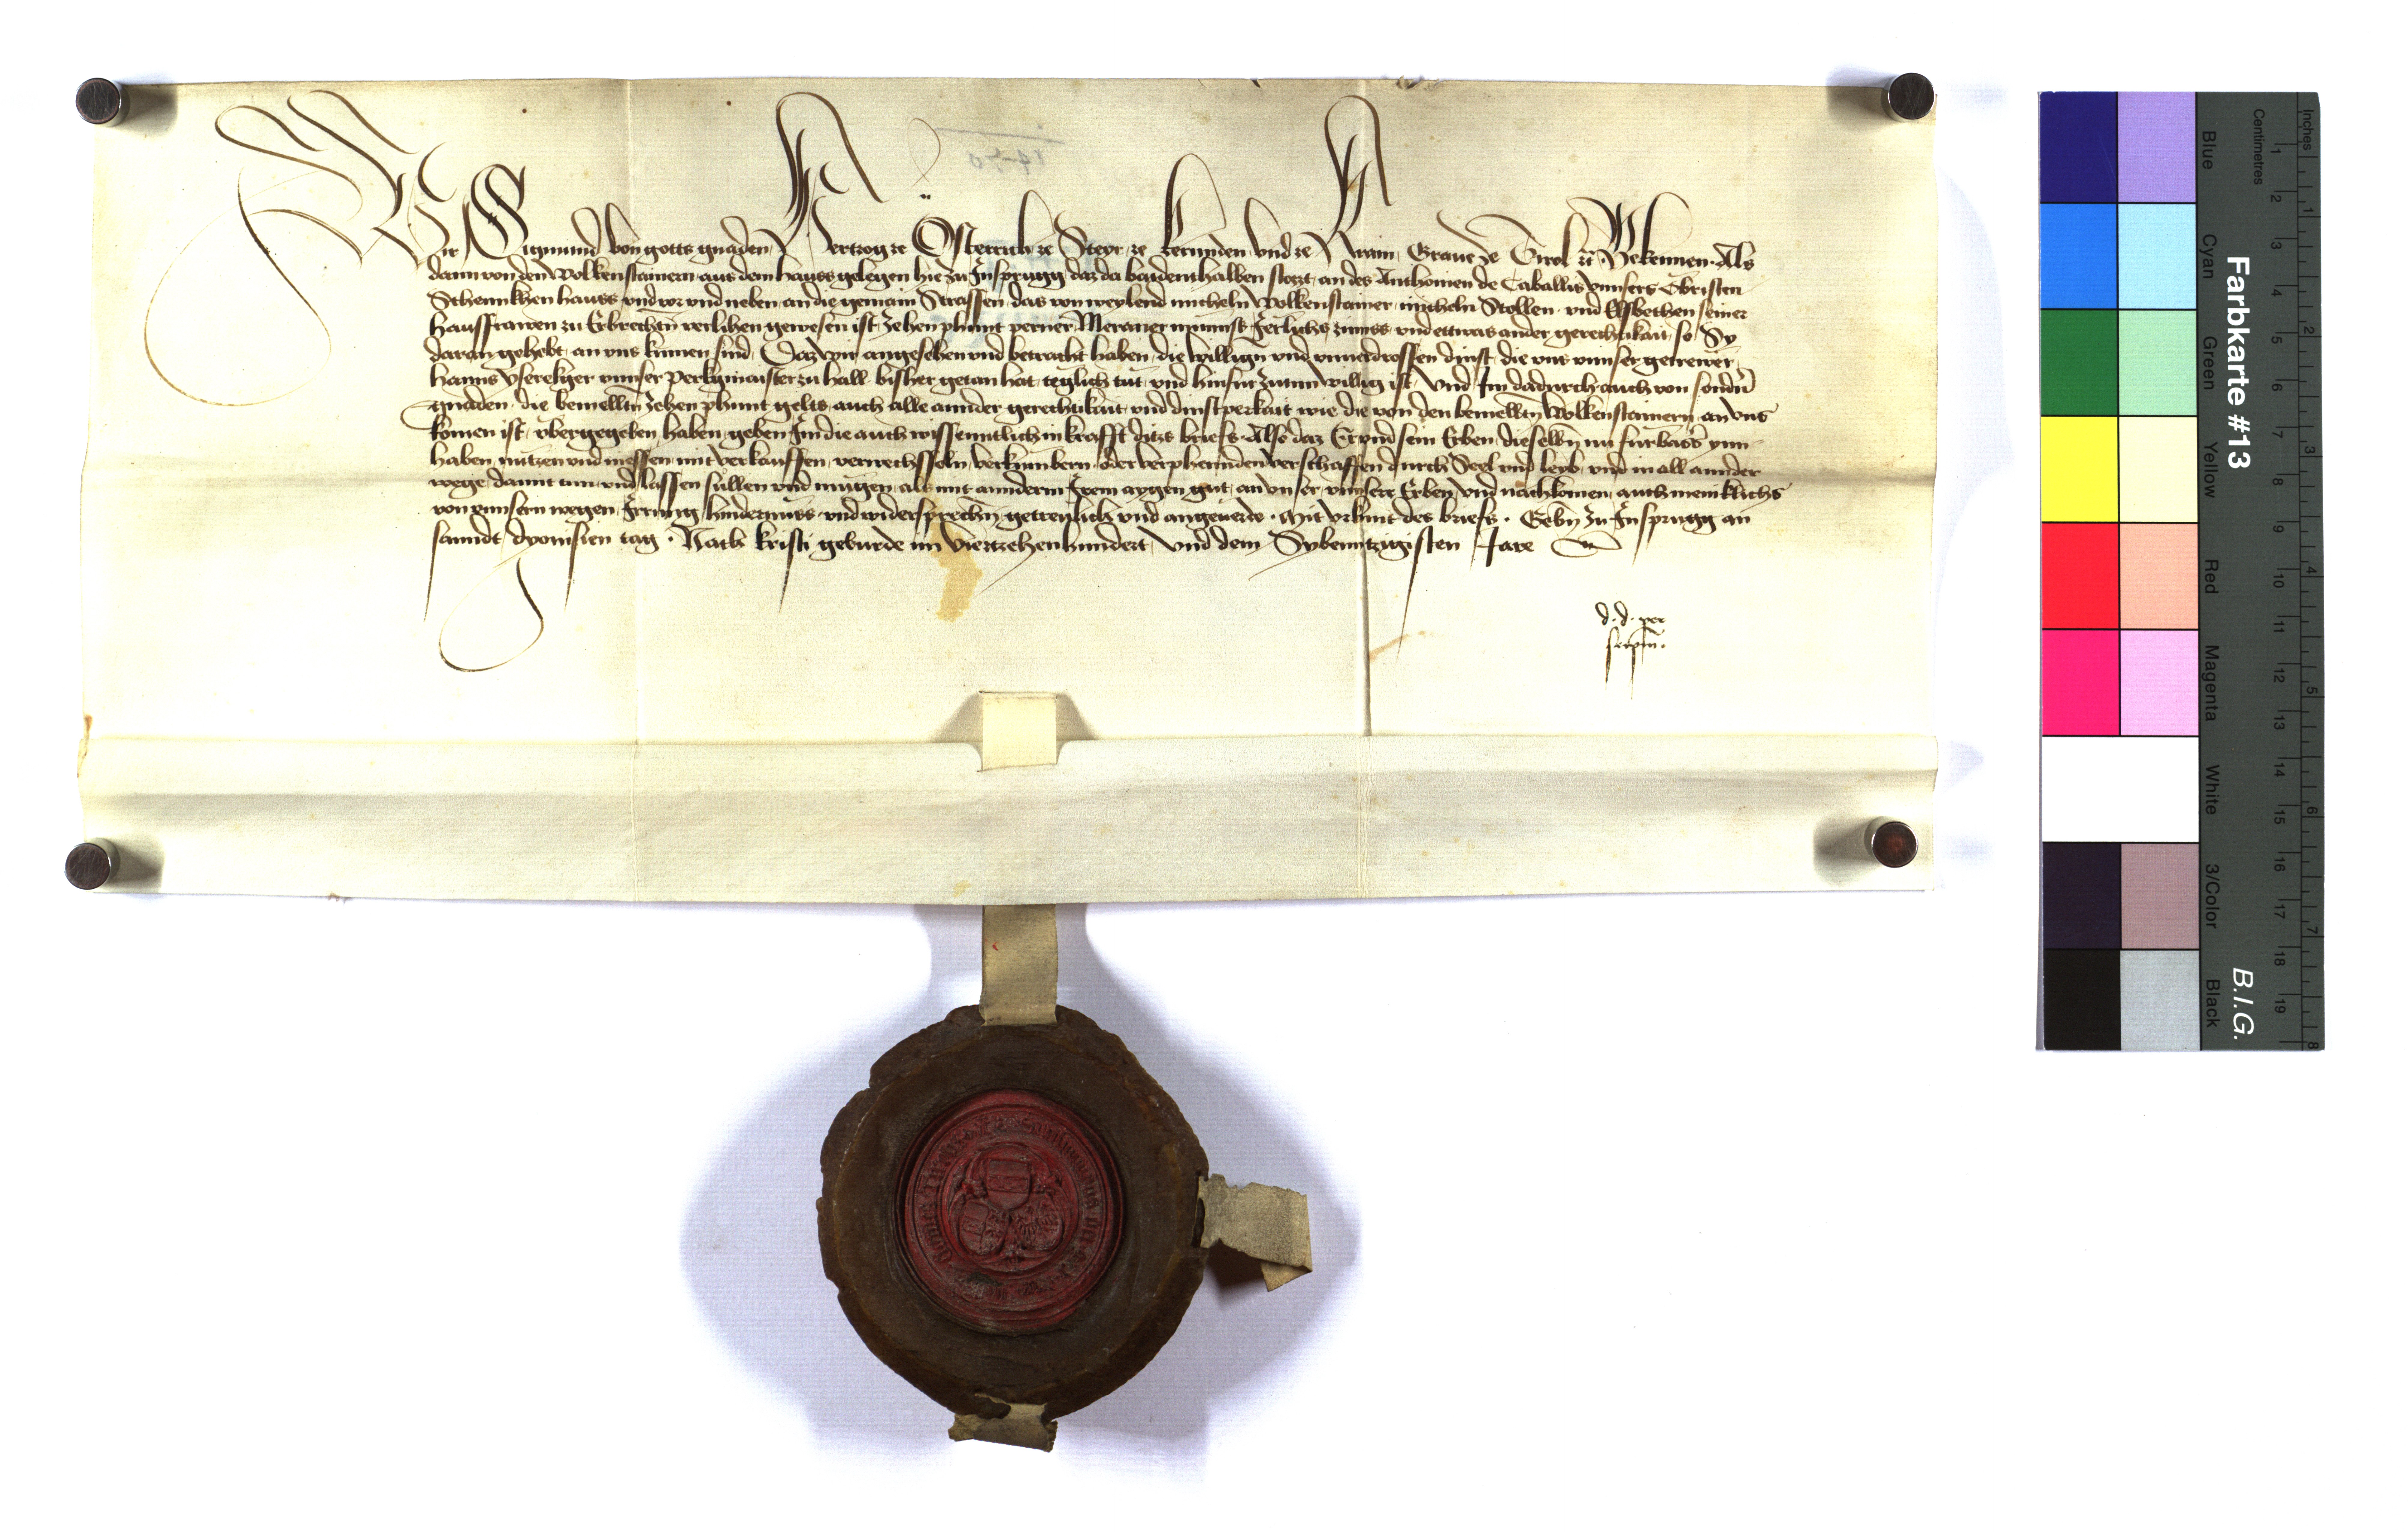 Wir Sigmund von gotts gnaden Hertzog ze Österrich ze Steyr ze Kernnden vnd ze Krain Graue ze Tirol zc Bekennen. Als
dann von den Wolkenstainern aus dem hauss gelegen hie zu Insprugg daz da baidenthalben stozt an des Anthonien de Caballis vnnsers Obristen
Schennkhen hauss vnd vor vnd neben an die gemain Strassen, das von weylend micheln Wolkenstainer, micheln Stollen vnd Elsbethen seiner
hausfrawen zu Erbrechten verlihen gewesen ist, zehen phunt perner Meraner münnss Jerlichs zinnss vnd ettwas ander gerechtikait, so Sy
daran gehebt, an vns kumen sind, Daz wir angesehen vnd betracht haben, die willign vnd vnuerdrossen dinst, die vns vnnser getrewer
hanns vserekger vnnser Perkgmaister zu hall bisher getan hat, teglich tut, vnd hinfur zutun willig ist, Vnd Im dadurch auch von sondrn
gnaden, die bemelltn zehen phunt gelts, auch alle annder gerechtikait vnd dinstperkait wie die von den bemelltn Wolkenstainern an vns
komen ist, vbergegeben haben, geben Im die auch wissenntlich in krafft ditzs briefs, Also daz Er vnd sein Erben, dieselbn nu furbasser ynn
haben, nutzen vnd niessen, mit verkauffen, verwechsseln, verkumbern, oder verphennden, verschaffen durch Seel vnd leyb, vnd in all annder
wege, damit tun vnd lassen sullen vnd mugen, als mit annderm Irem aygen gut, an vnser, vnnserr Erben, vnd nachkomen, auch meniklichs
von vnnsern wegen, Irrung, hindernüss, vnd widersprechn, getreulich vnd angeuerde. Mit vrkunt des briefs. Gebn zu Insprugg an
sanndt dyonisien tag. Nach kristi geburde im Viertzehenhundert, vnd dem Sybenntzigisten Jare
d. d. per
seipm.
1470
Farbkarte #13
B.I.G.
Inches
Centimetres
1 2 3 4 5 6 7 8
1 2 3 4 5 6 7 8 9 10 11 12 13 14 15 16 17 18 19
Blue
Cyan
Green
Yellow
Red
Magenta
White
3/Color
Black